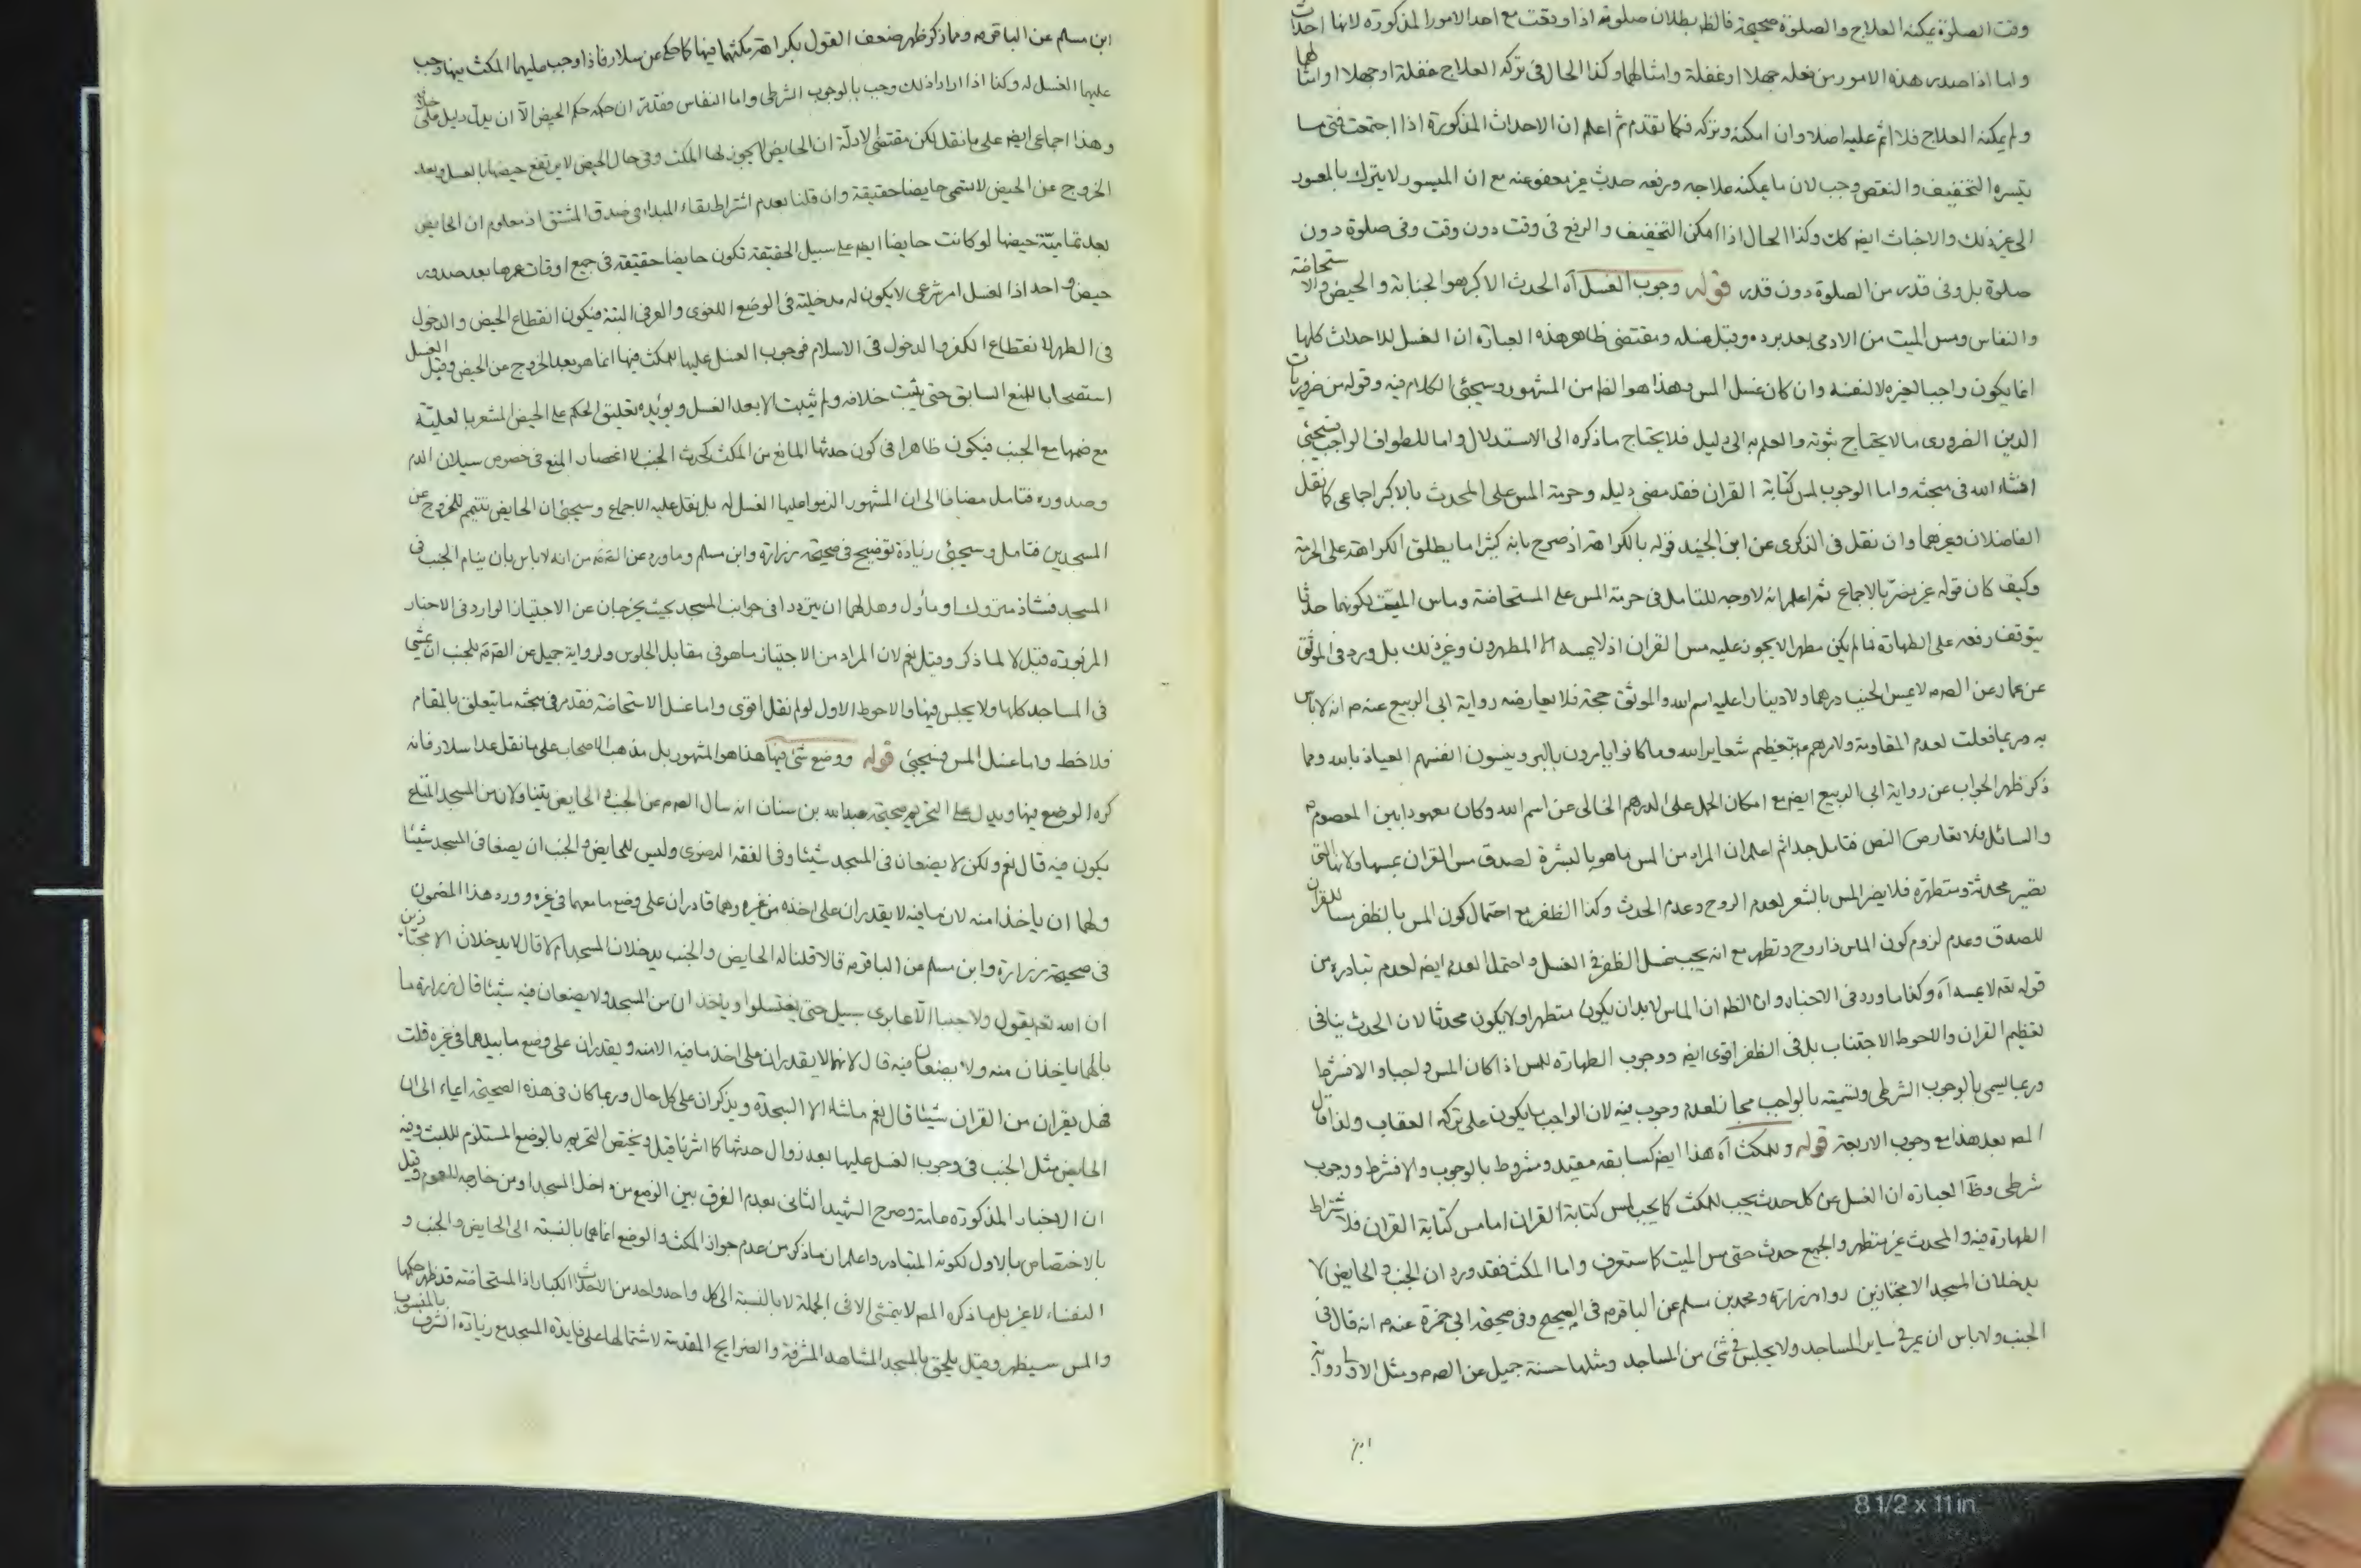 وقت الصلوة يمكنه العلاج والصلوة صحيحة فالظ بطلان صلوته اذا وقعت مع احد الامور المذكورة لانها احداث
واما اذا صدر هذه الامور من فعله جهلا او غفلة وامثالها وكذا الحال في تركه العلاج غفلة او جهلا او امثالها
ولم يمكنه العلاج فلا اثم عليه اصلا وان امكنه وتركه فكما تقدم ثم اعلم ان الاحداث المذكورة اذا اجتمعت فمتى ما
يتسره التخفيف والنقص وجب لان ما يمكنه علاجه ورفعه حدث غير معفو عنه مع ان الميسور لا يترك بالمعسور
الى غير ذلك والاخباث ايضا كك وكذا الحال اذا امكن التخفيف والرفع في وقت دون وقت وفي صلوة دون
صلوة بل وفي قدر من الصلوة دون قدر قوله وجوب الغسل آه الحدث الاكبر هو الجنابة والحيض والاستحاضة
والنفاس ومس الميت من الادمي بعد برده وقبل غسله ومقتضى ظاهر هذه العبارة ان الغسل للاحداث كلها
انما يكون واجبا لغيره لا لنفسه وان كان غسل المس وهذا هو الظ من المشهور وسيجئ الكلام فيه وقوله من ضروريات
الدين الضروري ما لا يحتاج ثبوته والعلم به الى دليل فلا يحتاج ما ذكره الى الاستدلال واما للطواف الواجب فسيجئ
انشاء الله في مبحثه واما الوجوب لمس كتابة القران فقد مضى دليله وحرمة المس على المحدث بالاكبر اجماعي كما نقل
الفاضلان وغيرهما وان نقل في الذكرى عن ابن الجنيد قوله بالكراهة اذ صرح بانه كثيرا ما يطلق الكراهة على الحرمة
وكيف كان قوله غير مضر بالاجماع ثم اعلم انه لا وجه للتامل في حرمة المس على المستحاضة وماس الميت لكونهما حدثا
يتوقف رفعه على الطهارة فما لم يكن مطهرا لا يجوز عليه مس القران اذ لا يمسه الا المطهرون وغير ذلك بل ورد في الموثق
عن عمار عن الصم لا يمس الجنب درهما ولا دينارا عليه اسم الله والموثق حجة فلا يعارضه رواية ابي الربيع عنه م انه لا باس
به وربما فعلت لعدم المقاومة ولامرهم م بتعظيم شعاير الله وما كانوا يامرون بالبر وينسون انفسهم العياذ بالله ومما
ذكر ظهر الجواب عن رواية ابي الربيع ايضا مع امكان الحمل على الدرهم الخالي عن اسم الله وكان معهودا بين المعصوم م
والسائل فلا تعارض النص فتامل جدا ثم اعلم ان المراد من المس ما هو بالبشرة لصدق مس القران بمسها ولانها التي
تصير محدثة ومتطهرة فلا يضر المس بالشعر لعدم الروح وعدم الحدث وكذا الظفر مع احتمال كون المس بالظفر مسا للقران
للصدق وعدم لزوم كون الماس ذا روح وتطهر مع انه يجب غسل الظفر في الغسل واحتمال العدم ايضا لعدم تبادره من
قوله تعه لا يمسه آه وكذا ما ورد في الاخبار وان الظه ان الماس لا بد ان يكون متطهرا ولا يكون محدثا لان الحدث ينافي
تعظيم القران والاحوط الاجتناب بل في الظفر اقوى ايضا ووجوب الطهارة للمس اذا كان المس واجبا والا فشرط
وربما يسمى بالوجوب الشرطي وتسميته بالواجب مجاز لعدم وجوب فيه لان الواجب ما يكون على تركه العقاب ولذا قال
المص بعد هذا مع وجوب الاربعة قوله وللمكث آه هذا ايضا كسابقه مقيد ومشروط بالوجوب والا فشرط ووجوب
شرطي وظ العبارة ان الغسل عن كل حدث يجب للمكث كما يجب لمس كتابة القران اما مس كتابة القران فلاشتراط
الطهارة فيه والمحدث غير متطهر والجميع حدث حتى مس الميت كما ستعرف واما المكث فقد ورد ان الجنب والحايض لا
يدخلان المسجد الا مجتازين رواه زرارة ومحمد بن مسلم عن الباقر م في الصحيح وفي صحيحة ابي حمزة عنه م انه قال في
الجنب ولا باس ان يمر في ساير المساجد ولا يجلس في شئ من المساجد ومثلها حسنة جميل عن الصم ومثل الاولى رواية
ابن
ابن مسلم عن الباقر م ومما ذكر ظهر ضعف القول بكراهة مكثهما فيها كما حكى عن سلار فاذا وجب عليهما المكث فيها وجب
عليهما الغسل له وكذا اذا اراد ذلك وجب بالوجوب الشرطي واما النفاس فقد مر ان حكمه حكم الحيض الا ان يدل دليل على خلافه
وهذا اجماعي ايضا على ما نقل لكن مقتضى الادلة ان الحايض لا يجوز لها المكث وفي حال الحيض لا يرتفع حيضها بالغسل وبعد
الخروج عن الحيض لا يسمى حايضا حقيقة وان قلنا بعدم اشتراط بقاء المبدا في صدق المشتق اذ معلوم ان الحايض
بعد تمامية حيضها لو كانت حايضا ايضا على سبيل الحقيقة تكون حايضا حقيقة في جميع اوقات عمرها بعد صدور
حيض واحد اذ الغسل امر شرعي لا يكون له مدخلية في الوضع اللغوي والعرفي البتة فيكون انقطاع الحيض والدخول
في الطهر كانقطاع الكفر والدخول في الاسلام فوجوب الغسل عليها للمكث فيها انما هو بعد الخروج عن الحيض وقبل الغسل
استصحابا للمنع السابق حتى يثبت خلافه ولم يثبت الا بعد الغسل ويؤيده تعليق الحكم على الحيض المشعر بالعلية
مع ضمها مع الجنب فيكون ظاهرا في كون حدثها المانع من المكث كحدث الجنب لا انحصار المنع في خصوص سيلان الدم
وصدوره فتامل مضافا الى ان المشهور الزموا عليها الغسل له بل نقل عليه الاجماع وسيجئ ان الحايض تتيمم للخروج عن
المسجدين فتامل وسيجئ زيادة توضيح في صحيحة زرارة وابن مسلم وما ورد عن القم من انه لا باس بان ينام الجنب في
المسجد فشاذ متروك او ماول وهل لهما ان يترددا في جوانب المسجد بحيث يخرجان عن الاجتياز الوارد في الاخبار
المزبورة قيل لا لما ذكر وقيل نعم لان المراد من الاجتياز ما هو في مقابل الجلوس ولرواية جميل عن القم للجنب ان يمشي
في المساجد كلها ولا يجلس فيها والاحوط الاول لو لم نقل اقوى واما غسل الاستحاضة فقد مر في مبحثه ما يتعلق بالمقام
فلاحظ واما غسل المس فسيجئ قوله ووضع شئ فيها هذا هو المشهور بل مذهب الاصحاب على ما نقل عدا سلار فانه
كره الوضع فيها ويدل على التحريم صحيحة عبدالله بن سنان انه سال الصم عن الجنب والحايض يتناولان من المسجد المتاع
يكون فيه قال نعم ولكن لا يضعان في المسجد شيئا وفي الفقه الرضوي وليس للحايض والجنب ان يضعا في المسجد شيئا
ولهما ان ياخذا منه لان ما فيه لا يقدران على اخذه من غيره وهما قادران على وضع ما معهما في غيره وورد هذا المضمون
في صحيحة زرارة وابن مسلم عن الباقر م قالا قلنا له الحايض والجنب يدخلان المسجد ام لا قال لا يدخلان الا مجتازين
ان الله تعه يقول ولا جنبا الا عابري سبيل حتى يغتسلوا وياخذان من المسجد ولا يضعان فيه شيئا قال زرارة ما
بالهما ياخذان منه ولا يضعان فيه قال لانهما لا يقدران على اخذ ما فيه الا منه ويقدران على وضع ما بيدهما في غيره قلت
فهل يقران من القران شيئا قال نعم ما شاء الا السجدة ويذكران على كل حال وربما كان في هذه الصحيحة ايماء الى ان
الحايض مثل الجنب في وجوب الغسل عليها بعد زوال حدثها كما اشرنا قيل ويختص التحريم بالوضع المستلزم للبث وفيه
ان الاخبار المذكورة عامة وصرح الشهيد الثاني بعدم الفرق بين الوضع من داخل المسجد او من خارجه للعموم وقيل
بالاختصاص بالاول لكونه المتبادر واعلم ان ما ذكر من عدم جواز المكث والوضع انما هما بالنسبة الى الحايض والجنب و
النفساء لا غير بل ما ذكره المص لا يتمشى الا في الجملة لا بالنسبة الى كل واحد واحد من الاحداث الكبار اذ المستحاضة قد ظهر حكمها
والمس سيظهر وقيل يلحق بالمسجد المشاهد المشرفة والضرايح المقدسة لاشتمالها على فايدة المسجد مع زيادة الشرف بالمنسوب
8 1/2 x 11 in.